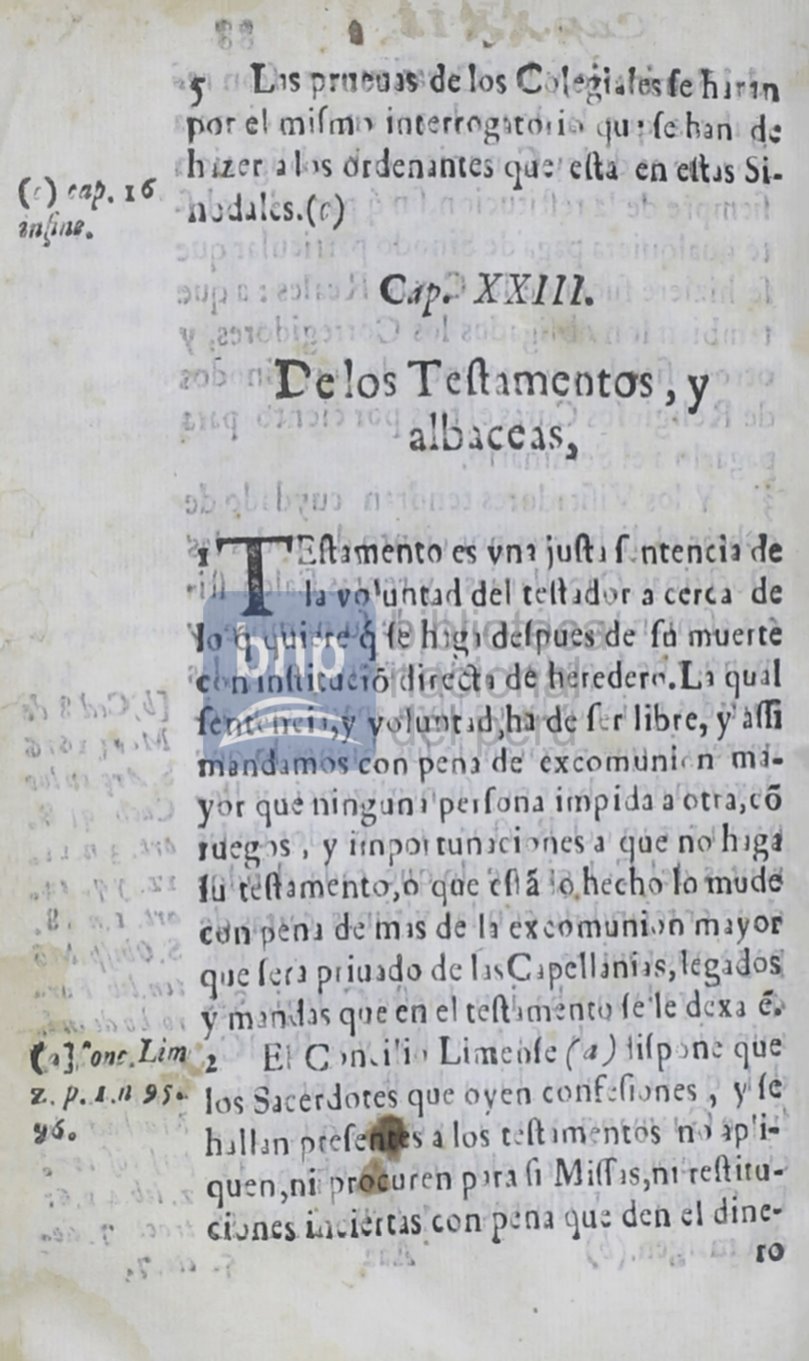 5 Las prueuas de los Colegiales se haran
por el mismo interrogatorio que se han de
hazer a los ordenantes que esta en estas Si-
nodales.(c)
(c) cap. 16
in fine.
Cap. XXIII.
De los Testamentos, y
albaceas,
1 TEstamento es vna justa sentencia de
la voluntad del testador a cerca de
lo q̃ quiere q̃ se haga despues de su muerte
con institució directa de heredero. La qual
sentencia, y voluntad, ha de ser libre, y assi
mandamos con pena de excomunion ma-
yor que ninguna persona impida a otra, cõ
ruegos, y importunaciones a que no haga
su testamento, o que està lo hecho lo mude
con pena de mas de la excomunion mayor
que sera priuado de las Capellanias, legados
y mandas que en el testamento se le dexa ẽ.
(a) Conc. Lim
2. p. 1. n 95.
96.
2 El Concilio Limense (a) dispone que
los Sacerdotes que oyen confesiones, y se
hallan presentes a los testamentos no apli-
quen, ni procuren para si Missas, ni restitu-
ciones inciertas con pena que den el dine-
ro
bnp biblioteca
nacional
del perú